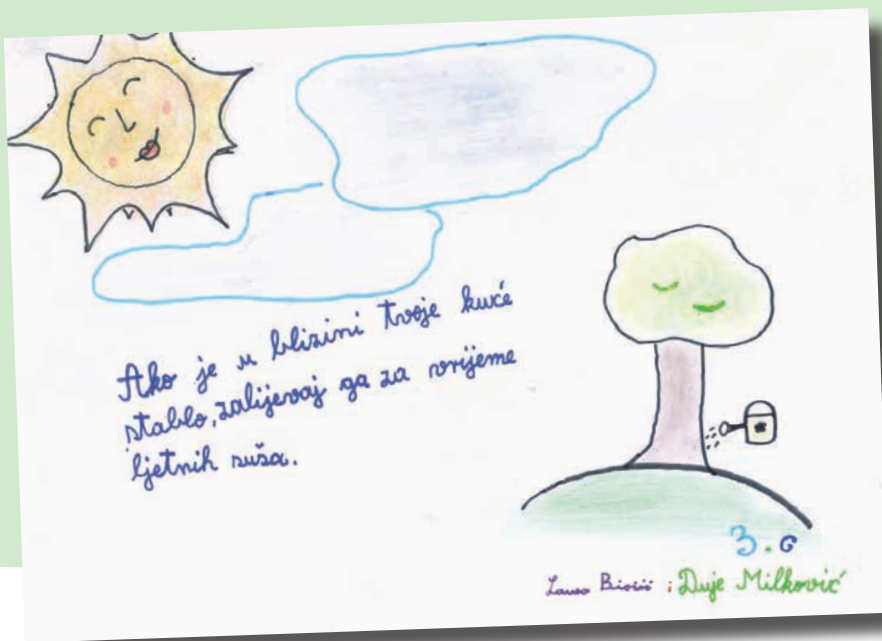 Ako je u blizini tvoje kuće
stablo, zalijevaj ga za vrijeme
ljetnih suša.
3.
i Duje Milković